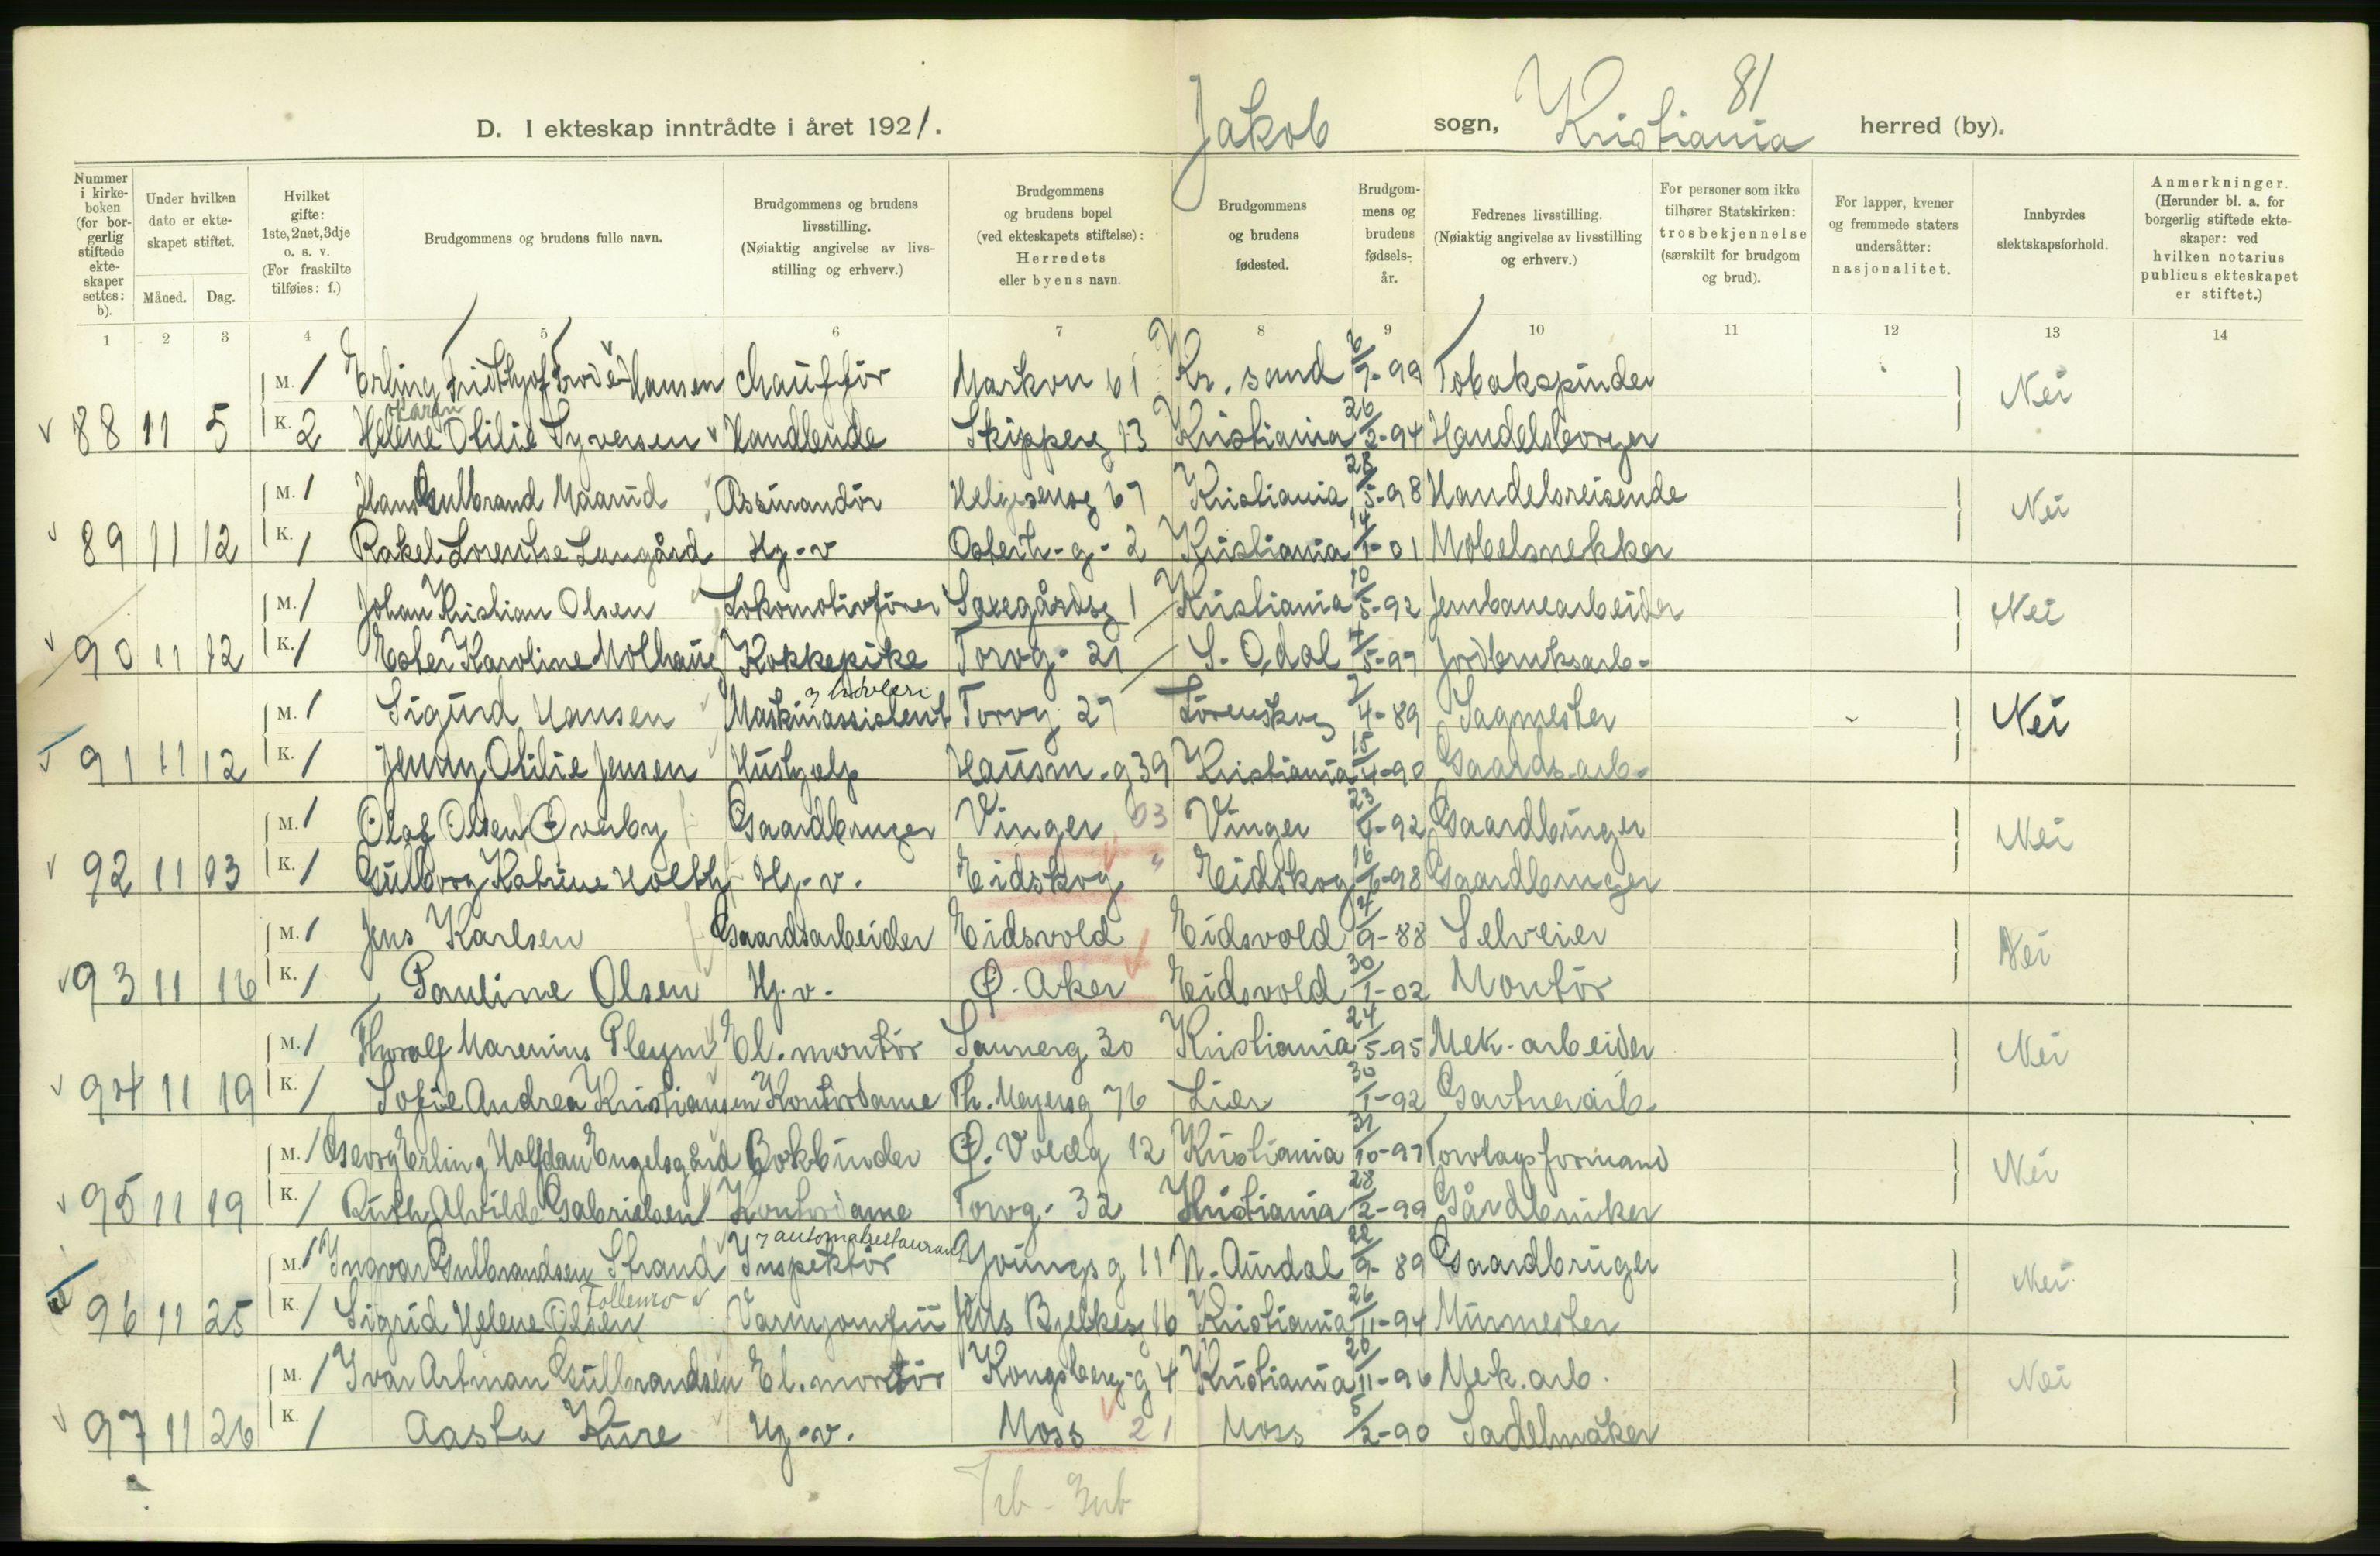 81
D. I ekteskap inntrådte i året 1921. Jakob sogn, Kristiania herred (by).
Nummer i kirkeboken (for borgerlig stiftede ekteskaper settes: b).
Under hvilken dato er ekteskapet stiftet.
Måned. Dag.
Hvilket gifte: 1ste, 2net, 3dje o. s. v. (For fraskilte tilføies: f.)
Brudgommens og brudens fulle navn.
Brudgommens og brudens livsstilling. (Nøiaktig angivelse av livsstilling og erhverv.)
Brudgommens og brudens bopel (ved ekteskapets stiftelse): Herredets eller byens navn.
Brudgommens og brudens fødested.
Brudgommens og brudens fødsels-år.
Fedrenes livsstilling. (Nøiaktig angivelse av livsstilling og erhverv.)
For personer som ikke tilhører Statskirken: trosbekjennelse (særskilt for brudgom og brud).
For lapper, kvener og fremmede staters undersåtter: nasjonalitet.
Innbyrdes slektskapsforhold.
Anmerkninger. (Herunder bl. a. for borgerlig stiftede ekteskaper: ved hvilken notarius publicus ekteskapet er stiftet.)
1 2 3 4 5 6 7 8 9 10 11 12 13 14
M. 1 Erling Hansen Chauffør Markvn 61 Kr. sand 6/9-99 Tobakspinder Nei
88 11 5 K. 2 Helene Otilie Syversen Handlende Skipperg 13 Kristiania 26/2-94 Handelsborger
M. 1 Hans Gulbrand Maarud Assurandør Helgesensg 67 Kristiania 28/5-98 Handelsreisende Nei
89 11 12 K. 1 Rakel Lorentse Langård Hj-v Osterh-g-2 Kristiania 14/1-01 Møbelsnekker
M. 1 Johan Kristian Olsen Lokomotivfører Saxegårdsg 1 Kristiania 10/5-92 Jernbanearbeider Nei
90 11 12 K. 1 Ester Karoline Molhaug Kokkepike Torvg-21 S. Odal 4/5-97 Jordbruksarb-
M. 1 Sigurd Hansen Maskinassistent Torvg 27 Lørenskog 2/4-89 Sagmester Nei
91 11 12 K. 1 Jenny Otilie Jensen Hushjælp Hausm-g 39 Kristiania 18/4-90 Gaards-arb-
M. 1 Olaf Olsen Øverby Gaardbruger Vinger 03 Vinger 23/4-92 Gaardbruger Nei
92 11 13 K. 1 Gulborg Katrine Holth Hj-v. Eidskog " Eidskog 16/6-98 Gaardbruger
M. 1 Jens Karlsen Gaardsarbeider Eidsvold Eidsvold 4/9-88 Selveier Nei
93 11 16 K. 1 Pauline Olsen Hj.v. Ø. Aker Eidsvold 30/1-02 Montør
M. 1 Thoralf Marenius Pleym El. montør Sannerg 20 Kristiania 24/5-95 Mek-arbeider Nei
94 11 19 K. 1 Sofie Andrea Kristiansen Kontordame Th. Meyersg 76 Lier 30/1-92 Gartnerarb.
M. 1 Georg Erling Halfdan Engelsgård Bokbinder Ø. Voldg 12 Kristiania 31/10-97 Torvlagsformand Nei
95 11 19 K. 1 Ruth Alvilde Gabrielsen Kontordame Torvg-32 Kristiania 28/2-99 Gårdbruker
automatrestaurant
M. 1 Ingvar Gulbrandsen Strand Inspektør Youngsg 11 N. Aurdal 22/9-89 Gaardbruger Nei
Follemo
96 11 25 K. 1 Sigrid Helene Olsen Varmjomfru Jens Bjelkesg 16 Kristiania 26/11-94 Murmester
M. 1 Ivar Artman Gulbrandsen El. montør Kongsberg-g 4 Kristiania 20/11-96 Mek. arb. Nei
97 11 26 K. 1 Aasta Kure Hj-v. Moss 21 Moss 5/2-90 Sadelmaker